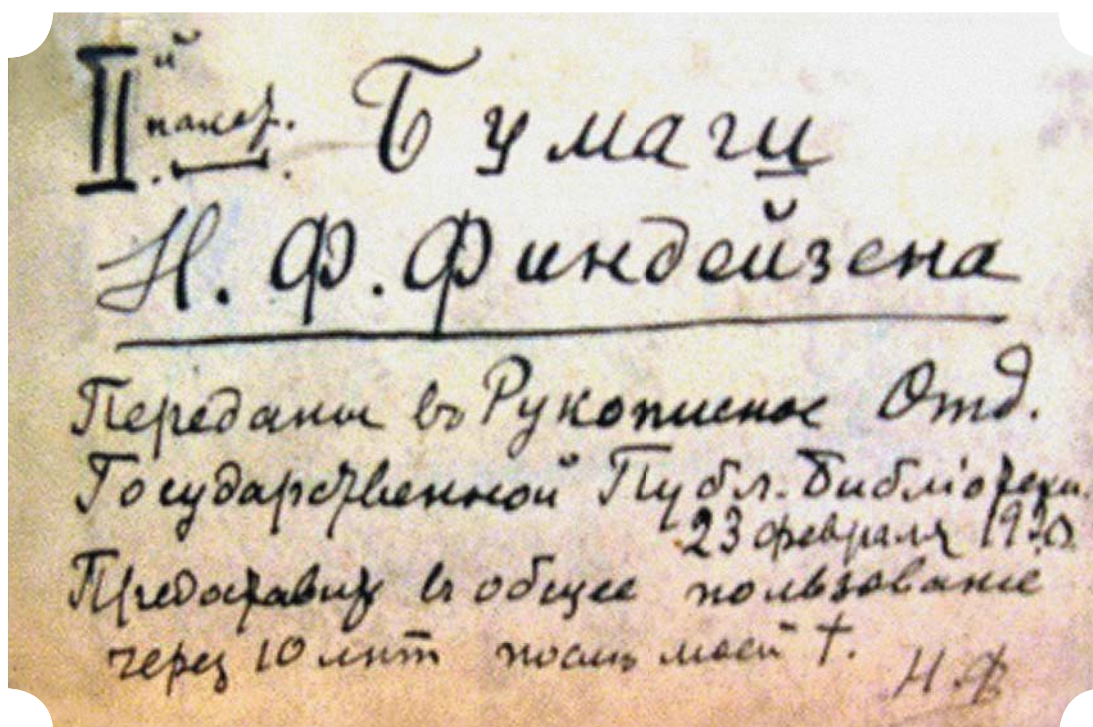 IIй пакет. Бумаги
Н. Ф. Финдейзена
Переданы въ Рукописное Отд.
Государственной Публ. Библіотеки.
23 февраля
Предоставить въ общее пользованіе
через 10 лѣт послѣ моей †.
Н.Ф